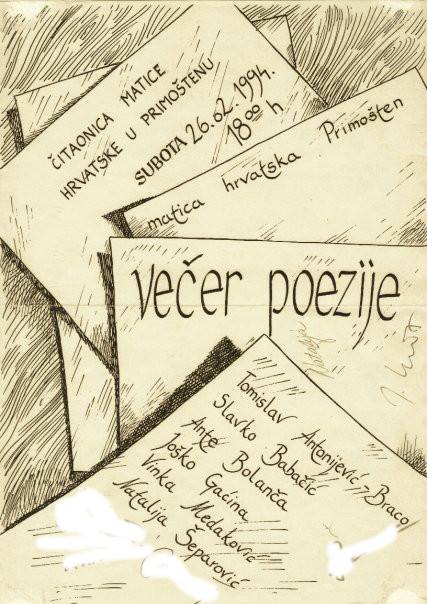 ČITAONICA MATICE
HRVATSKE U PRIMOŠTENU
SUBOTA 26.02.1994.
18⁰⁰ h
matica hrvatska Primošten
večer poezije
Tomislav Antonijević-Braco
Slavko Babačić
Ante Bolanča
Joško Gacina
Vinka Medaković
Natalija Šeparović